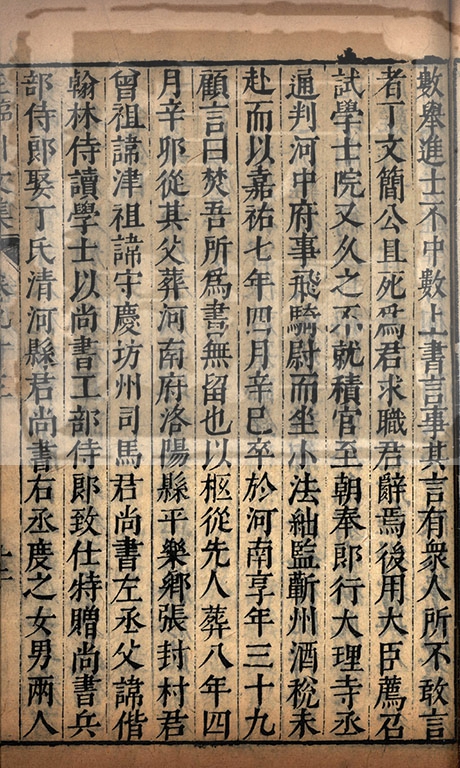 數舉進士不中數上書言事其言有衆人所不敢言
者丁文簡公且死爲君求職君辭焉後用大臣薦召
試學士院又久之不就積官至朝奉郎行大理寺丞
通判河中府事飛騎尉而坐小法絀監蘄州酒稅未
赴而以嘉祐七年四月辛巳卒於河南享年三十九
顧言曰焚吾所爲書無留也以柩從先人葬八年四
月辛卯從其父葬河南府洛陽縣平樂鄉張封村君
曾祖諱津祖諱守慶坊州司馬君尚書左丞父諱偕
翰林侍讀學士以尚書工部侍郎致仕特贈尚書兵
部侍郎娶丁氏清河縣君尚書右丞度之女男兩人
臨川文集 卷九十三